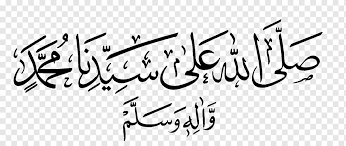 صَلَّى اللهُ عَلَى سَيِّدِنَا مُحَمَّدٍ
وَّاٰلِهٖ وَسَلَّمَ